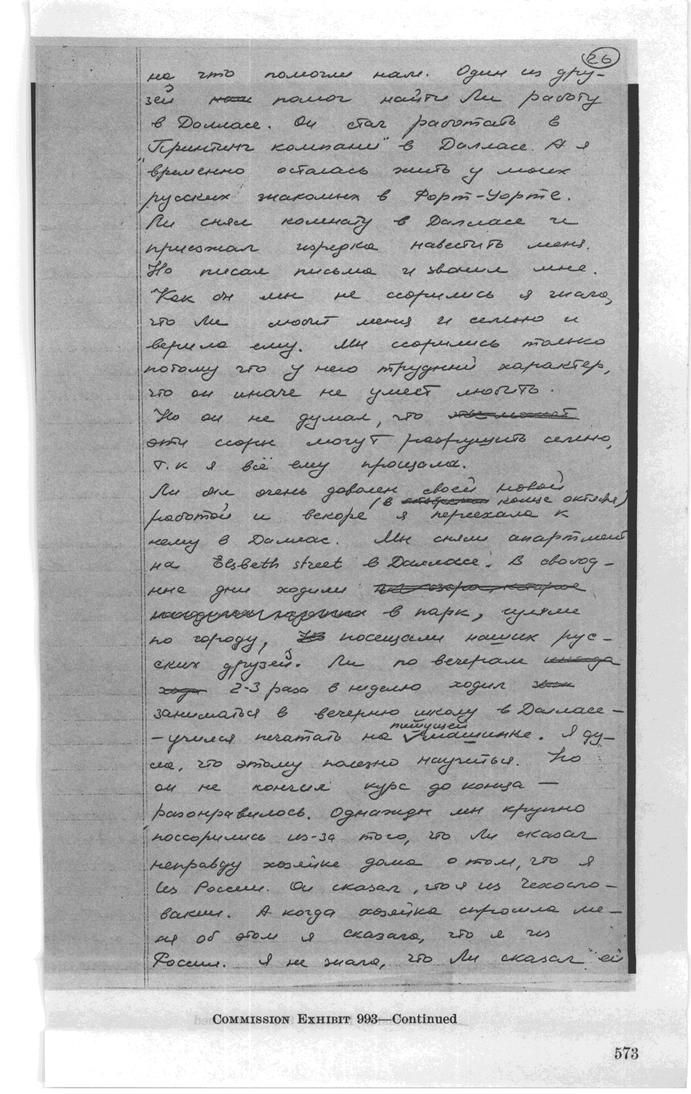 26
на что помогли нам. Один из дру-
зей помог найти Ли работу
в Далласе. Он стал работать в
"Принтинг компани" в Далласе. А я
временно осталась жить у моих
русских знакомых в Форт-Уорте.
Ли снял комнату в Далласе и
приезжал изредка навестить меня.
Но писал письма и звонил мне.
Как бы мы не ссорились я знала,
что Ли любит меня и семью и
верила ему. Мы ссорились только
потому что у него трудный характер,
что он иначе не умеет любить.
Но он не думал, что
эти ссоры могут разрушить семью,
т.к я всё ему прощала.
Ли был очень доволен своей новой
(в конце октября)
работой и вскоре я переехала к
нему в Даллас. Мы сняли апартмент
на Elsbeth street в Далласе. В свобод-
ные дни ходили
в парк, гуляли
по городу, посещали наших рус-
ских друзей. Ли по вечерам
2-3 раза в неделю ходил
заниматься в вечернюю школу в Далласе-
-учился печатать на пишущей машинке. Я ду-
ла, что этому полезно научиться. Но
он не кончил курс до конца —
разонравилось. Однажды мы крупно
поссорились из-за того, что Ли сказал
неправду хозяйке дома о том, что я
из России. Он сказал, что я из Чехосло-
вакии. А когда хозяйка спросила ме-
ня об этом я сказала, что я из
России. Я не знала, что Ли сказал ей
COMMISSION EXHIBIT 993—Continued
573